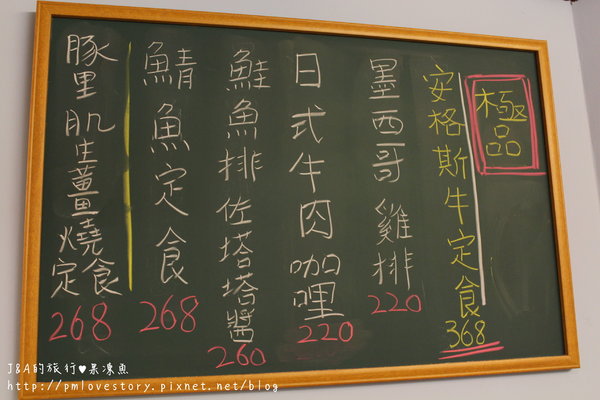 極品
安格斯牛定食
368
墨西哥雞排
220
日式牛肉咖哩
220
鮭魚排佐塔塔醬
260
鯖魚定食
268
豚里肌生薑燒定食
268
J&A的旅行♥果凍魚
http://pmlovestory.pixnet.net/blog